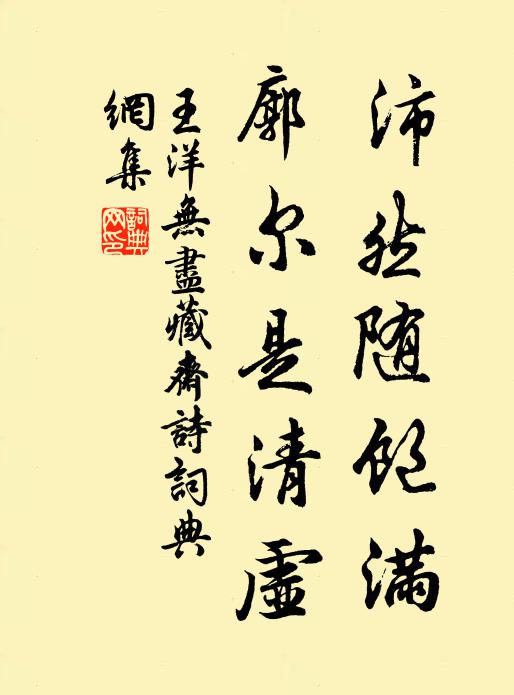 沛然随饱满
廓尔是清虚
王洋無盡藏齋詩詞典
網集
詞典網印